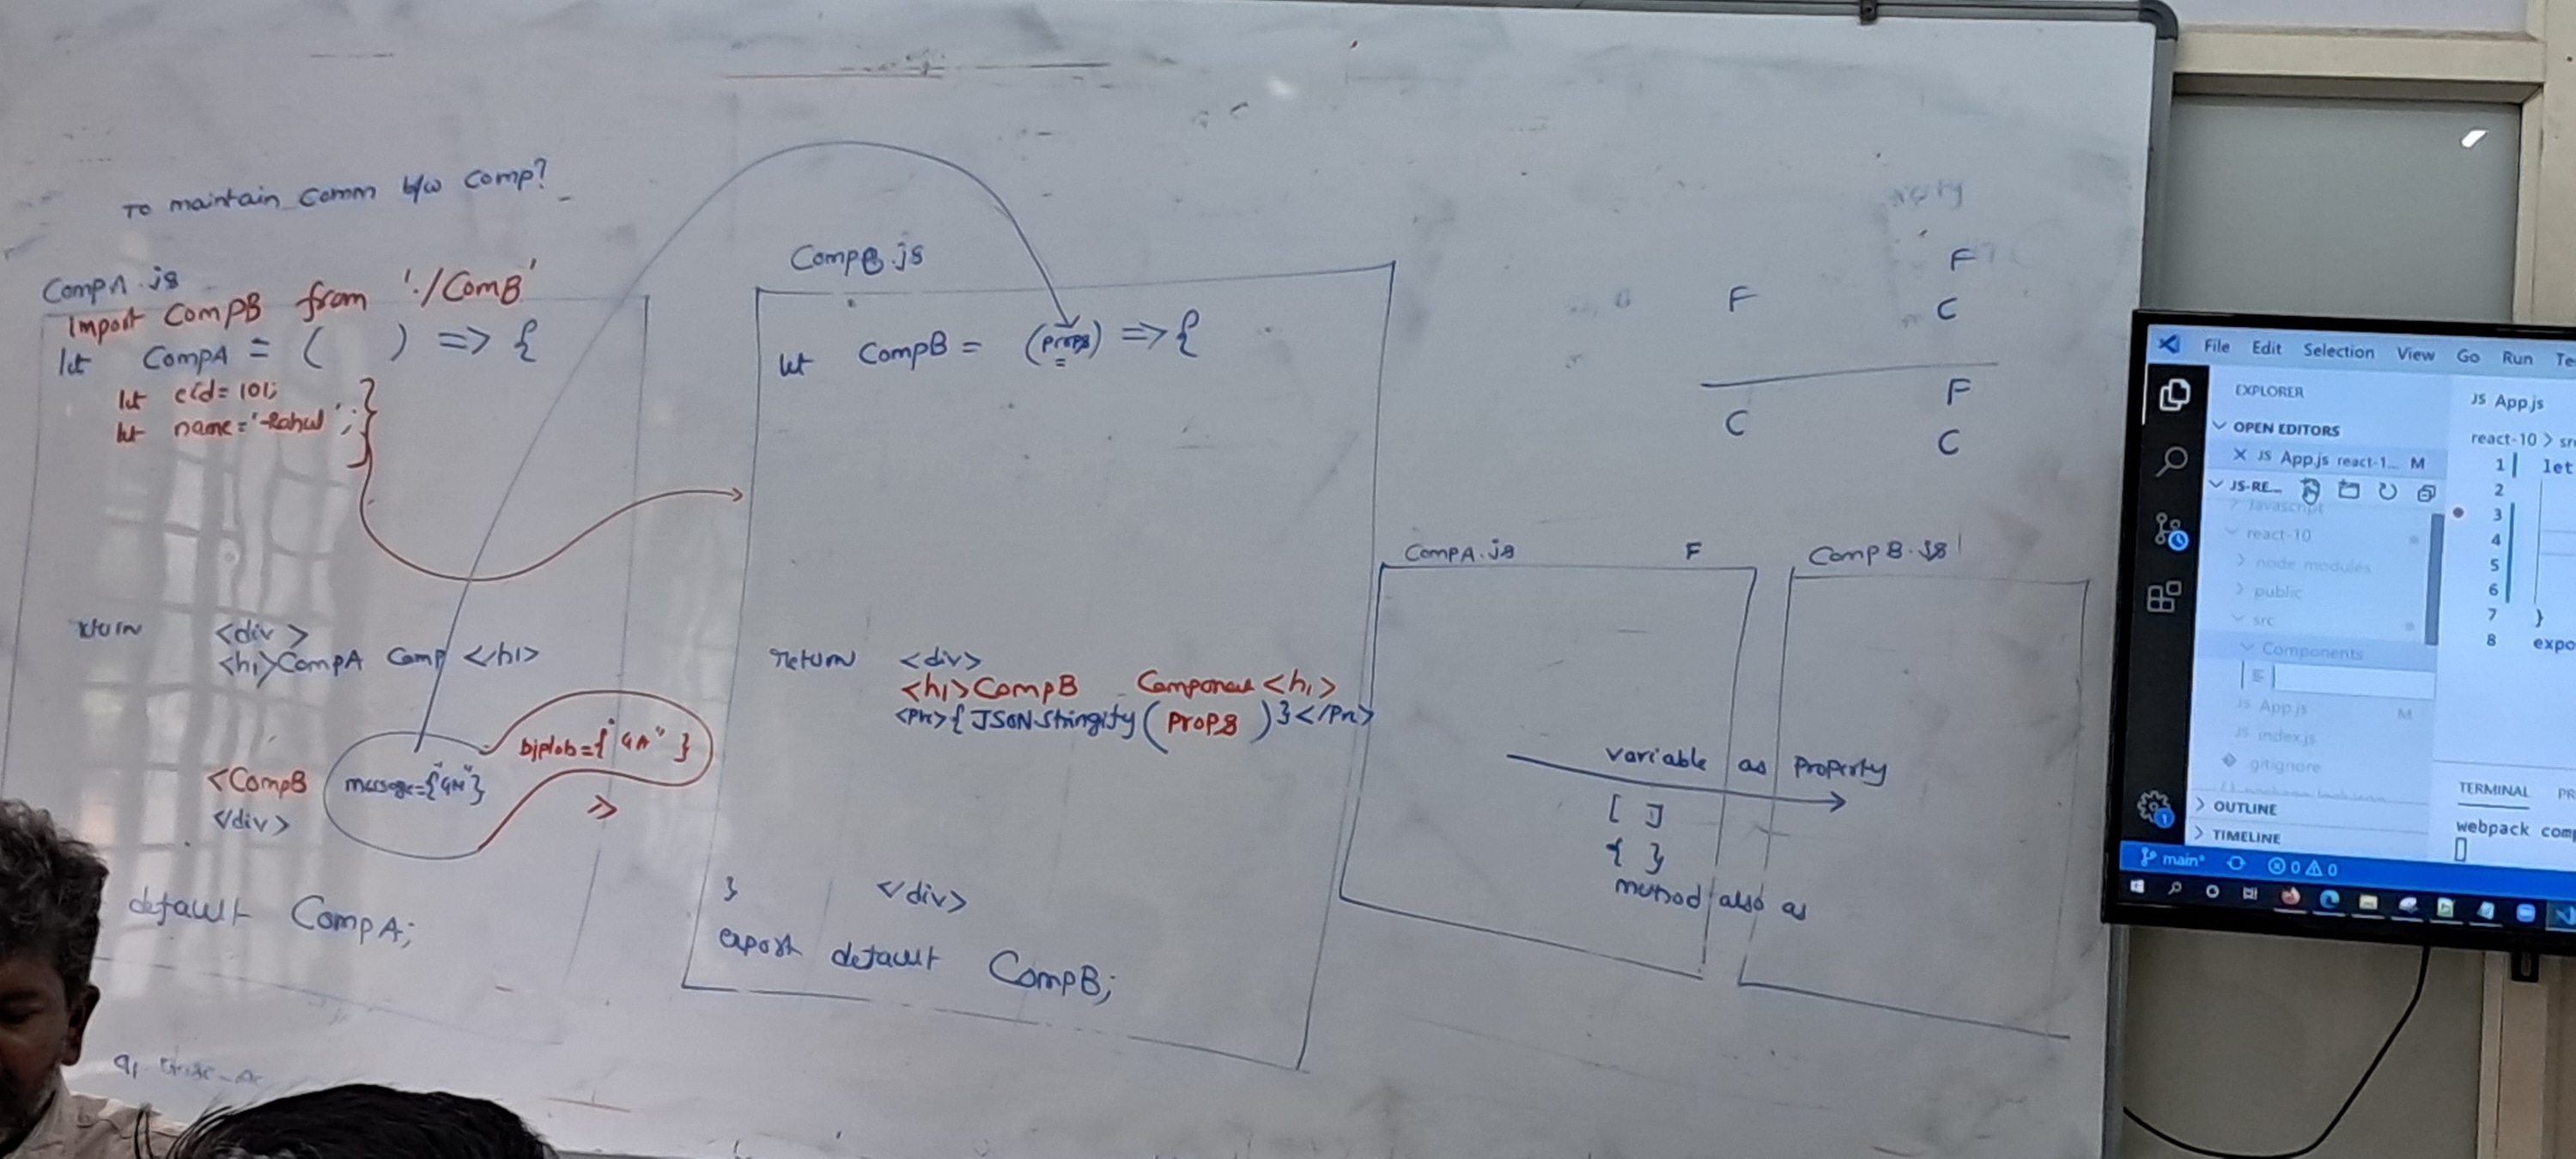 To maintain Comm b/w Comp?
CompA.js
Import CompB from './ComB'
let CompA = ( ) => {
let eid= 101;
let name='Rahul';
return <div>
<h1>CompA Comp </h1>
<CompB message={"GM"} biplob={"GA"} />
</div>
default CompA;
CompB.js
let CompB = (props) => {
return <div>
<h1>CompB Component <h1>
<Pre>{JSON.Stringify(props)}</Pre>
</div>
}
export default CompB;
F
C
F
C
F
C
CompA.js F
CompB.js
variable as property
[ ]
{ }
method also as
File Edit Selection View Go Run Te
EXPLORER
OPEN EDITORS
JS App.js react-1... M
JS-RE...
Javascript
react-10
node_modules
public
src
Components
JS App.js M
JS index.js
.gitignore
OUTLINE
TIMELINE
main* 0 0
JS App.js
react-10 > sr
1 let
2
3
4
5
6
7 }
8 expo
TERMINAL PR
webpack comp